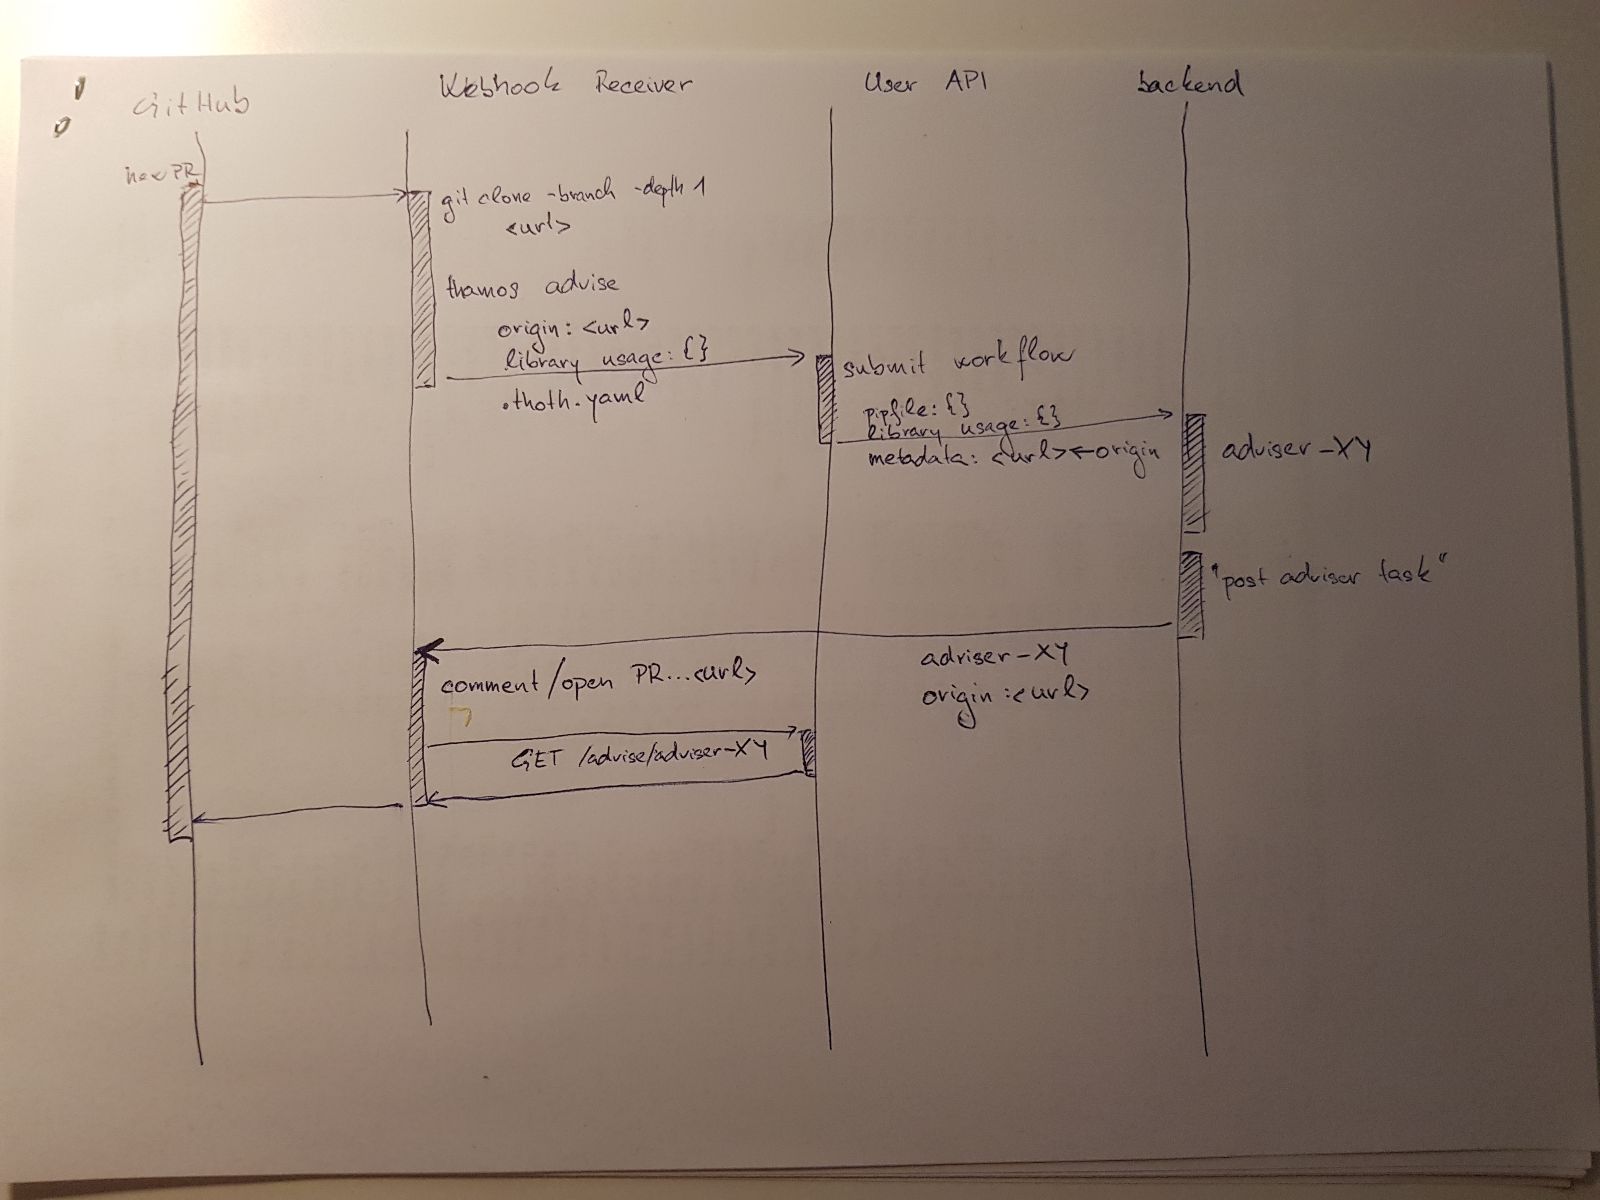 GitHub
Webhook Receiver
User API
backend
new PR
git clone -branch -depth 1
<url>
thamos advise
origin: <url>
library usage: {}
.thoth.yaml
submit workflow
pipfile: {}
library usage: {}
metadata: <url> ← origin
adviser-XY
"post adviser task"
adviser-XY
origin: <url>
comment/open PR...<url>
GET /advise/adviser-XY